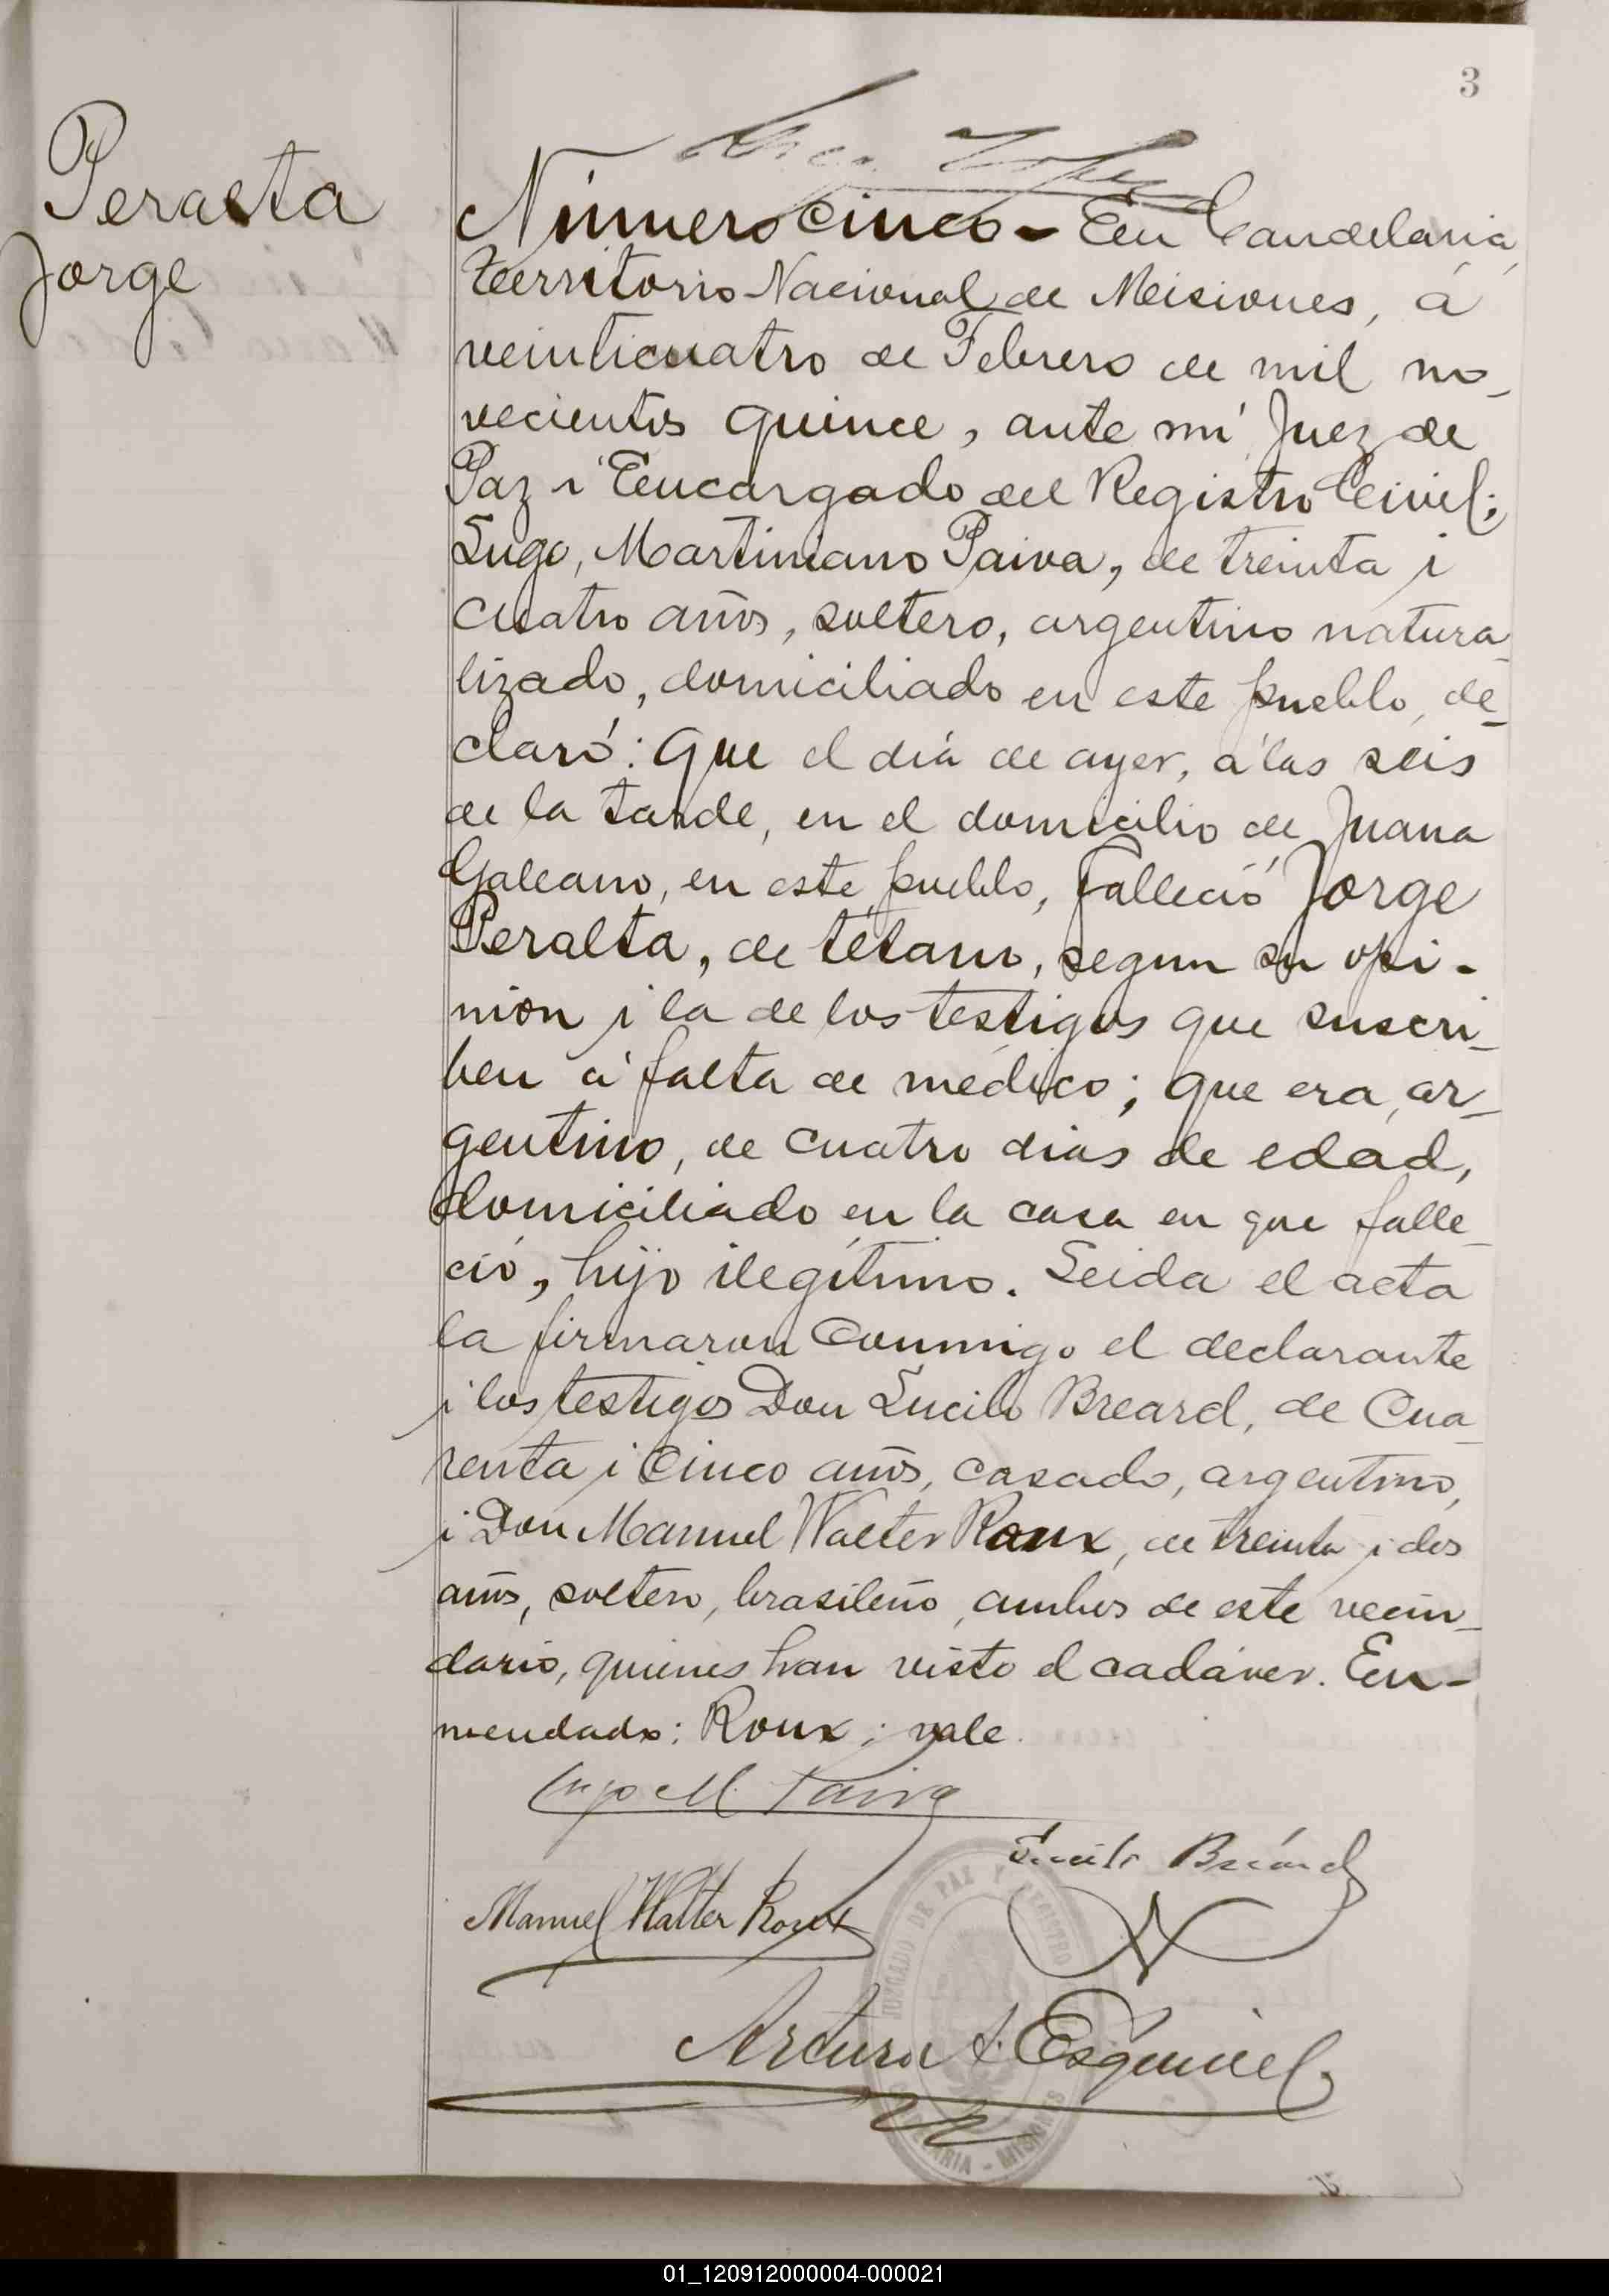 3
Peralta
Jorge
Número cinco - En Candelaria,
Territorio Nacional de Misiones, á
veinticuatro de Febrero de mil no_
vecientos quince, ante mí Juez de
Paz i Encargado del Registro Civil;
Lugo, Martiniano Paiva, de treinta i
cuatro años, soltero, argentino natura_
lizado, domiciliado en este pueblo, de_
claró: Que el día de ayer, á las seis
de la tarde, en el domicilio de Juana
Galeano, en este pueblo, falleció Jorge
Peralta, de tétano, segun su opi-
nión i la de los testigos que suscri_
ben á falta de médico; que era ar_
gentino, de cuatro dias de edad,
domiciliado en la casa en que falle_
ció, hijo ilegítimo. Leida el acta
la firmaron conmigo el declarante
i los testigos Don Lucilo Breard, de cua_
renta i cinco años, casado, argentino,
i Don Manuel Walter Roux, de treinta i dos
años, soltero, brasileño, ambos de este vecin_
dario, quienes han visto el cadáver. En-
mendado: Roux; vale.
M. Paiva
Lucilo Bréard
Manuel Walter Roux
JUZGADO DE PAZ Y REGISTRO
Arturo A. Esquivel
MISIONES
01_120912000004-000021